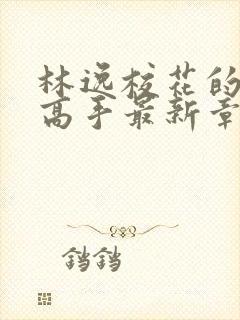 林逸校花的
高手最新章
铛铛